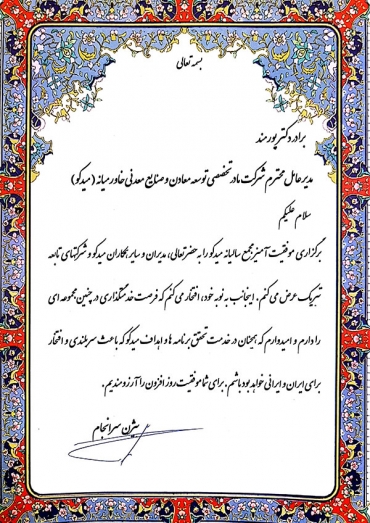 بسمه تعالی
برادر دکتر پورمند
مدیرعامل محترم شرکت مادر تخصصی توسعه معادن و صنایع معدنی خاورمیانه (میدکو)
سلام علیکم
برگزاری موفقیت آمیز مجمع سالیانه میدکو را به حضرتعالی، مدیران و سایر همکاران میدکو و شرکتهای تابعه
تبریک عرض می کنم. اینجانب به نوبه خود، افتخار می کنم که فرصت خدمتگذاری در چنین مجموعه ای
را دارم و امیدوارم که همچنان در خدمت تحقق برنامه ها و اهداف میدکو که باعث سربلندی و افتخار
برای ایران و ایرانی خواهد بود باشم. برای شما موفقیت روز افزون را آرزومندیم.
بیژن سرانجام